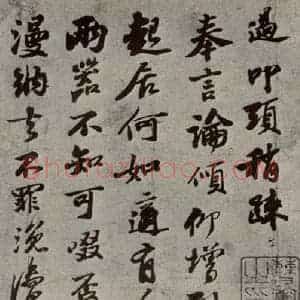 過叩頭稍疎
奉言論傾仰增
起居何如適有
兩器不知可啜否
漫納去不罪浼瀆